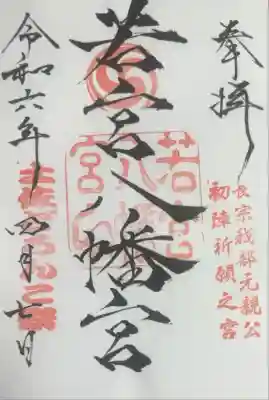 奉拝
長宗我部元親公
初陣祈願之宮
若宮八幡宮
若宮
八幡
宮印
令和六年四月七日
土佐どろんこ祭